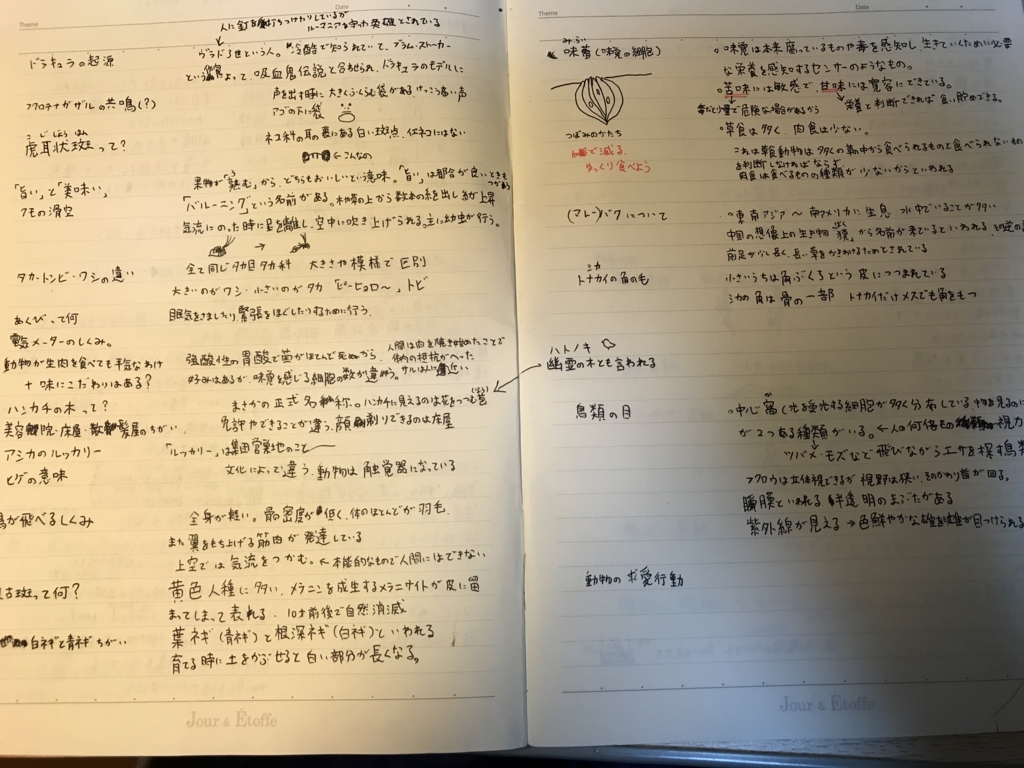 Theme
Date
人に釘を打ちつけたりしているが
ルーマニアを守った英雄とされている
ドラキュラの起源
ヴラド3世という人。冷酷で知られていて、ブラム・ストーカー
によって、吸血鬼伝説と合わせられ、ドラキュラのモデルに
フクロテナガザルの共鳴(?)
声を出す時に大きくふくらむ袋がある、けっこう高い声
アゴの下に袋
こじじょうはん
虎耳状斑って?
ネコ科の耳の裏にある白い斑点、イエネコにはない
←こんなの
「旨い」と「美味い」
果物が「熟む」から、どちらもおいしいという意味。「旨い」は都合が良いときも
つかう
クモの滑空
「バルーニング」という名前がある。木や草の上から数本の糸を出し糸が上昇
気流にのった時に足を離し、空中に吹き上げられる。主に幼虫が行う。
タカ・トンビ・ワシの違い
全て同じタカ目タカ科 大きさや模様で区別
大きいのがワシ・小さいのがタカ「ピーヒョロ〜」トビ
あくびって何
眠気をさましたり緊張をほぐしたりするために行う.
電気メーターのしくみ。
動物が生肉を食べても平気なわけ
強酸性の胃酸で菌がほとんど死ぬから、
人間は肉を焼き始めたことで
体内の抵抗がへった
+味にこだわりはある?
好みはあるが、味覚を感じる細胞の数が違う。サルは人に近い
ハンカチの木って?
まさかの正式名称。ハンカチに見えるのは花をつつむ苞
(ほう)
美容院・床屋・散髪屋のちがい、
免許やできることが違う、顔剃りできるのは床屋
アシカのルッカリー
「ルッカリー」は集団営巣地のこと
ヒゲの意味
文化によって違う、動物は触覚器になっている
鳥が飛べるしくみ
全身が軽い。骨密度が低く、体のほとんどが羽毛.
また翼をもち上げる筋肉が発達している
上空では気流をつかむ。←本能的なもので人間にはできない
蒙古斑って何?
黄色人種に多い、メラニンを成生するメラニサイトが皮に留
まってしまって表れる、10才前後で自然消滅
白ネギと青ネギちがい
葉ネギ(青ネギ)と根深ネギ(白ネギ)といわれる
育てる時に土をかぶせると白い部分が長くなる。
Jour & Étoffe
Theme
Date
みらい
味蕾(味覚の細胞)
つぼみのかたち
加齢で減る.
ゆっくり食べよう
○味覚は本来腐っているものや毒を感知し、生きていくために必要
な栄養を感知するセンサーのようなもの。
○苦味には敏感で、甘味には寛容にできている。
毒だと少量で危険な場合があるから
栄養と判断できれば食い貯めできる。
○草食は多く、肉食は少ない。
これは草食動物は多くの草の中から食べられるものと食べられないもの
を判断しなければならず、
肉食は食べるものの種類が少ないからといわれる
(マレー)バクについて
○東南アジア〜南アメリカに生息 水中でいることが多い
中国の想像上の生き物「獏」から名前が来ているといわれる
前足が少し長く、長い草をかきわけるためとされている
シカ
トナカイの角の毛
小さいうちは角ぶくろという皮につつまれている
シカの角は骨の一部 トナカイだけメスでも角をもつ
ハトノキ
幽霊の木とも言われる
鳥類の目
○中心窩(光を受光する細胞が多く分布している
が2つある種類がいる。←人の何倍もの視力
ツバメ・モズなどで飛びながらエサを探す鳥類
フクロウは立体視できるが視野は狭い、そのかわり首が回る。
瞬膜といわれる半透明のまぶたがある
紫外線が見える→色鮮やかな雄を雌が見つけられる
動物の求愛行動
Jour & Étoffe